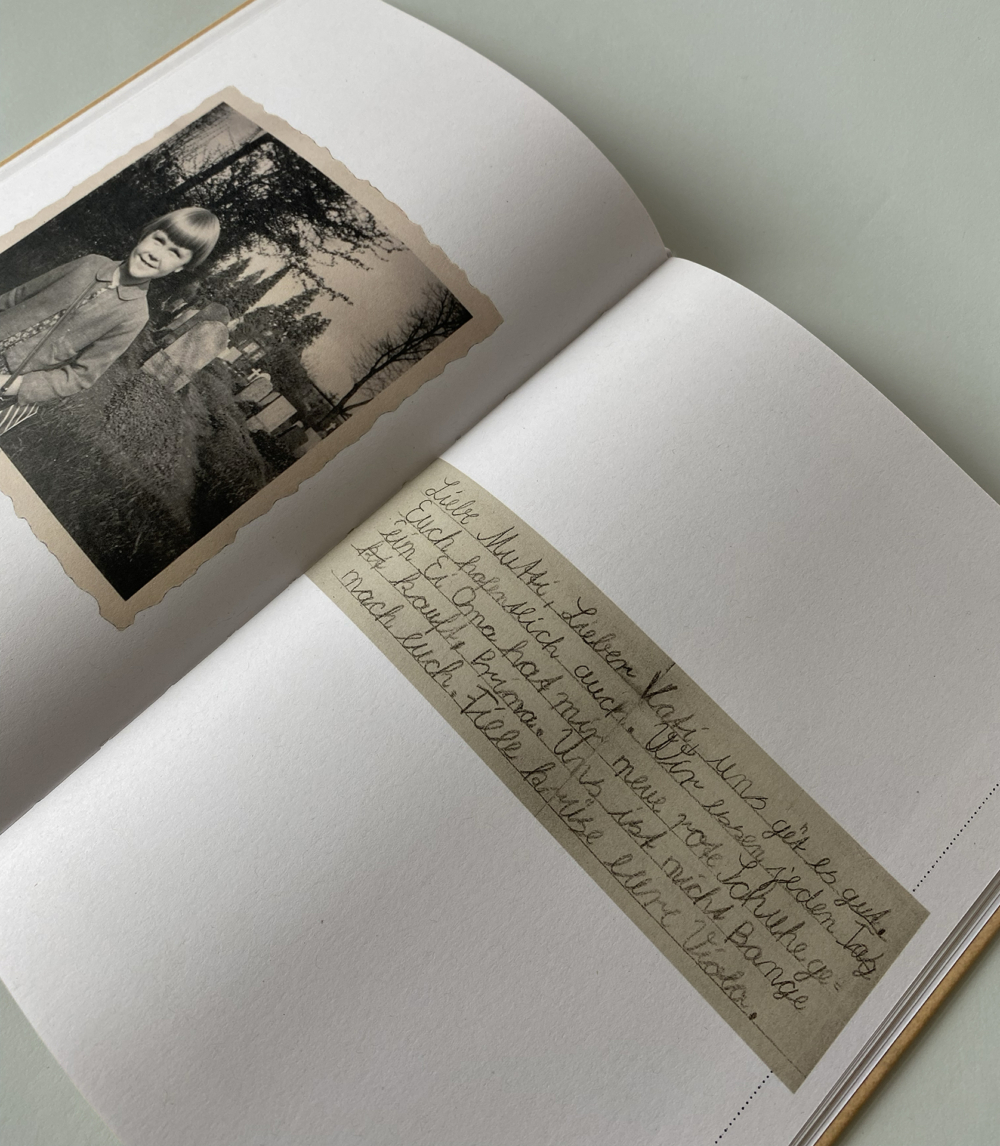 Liebe Mutti, Lieber Vati, uns get es gut.
Euch hofenslich auch. Wir essen jeden Tag
ein Ei Oma hat mir neue rote Schuhe ge=
kauft, Prima. Uns ist nicht Bange
nach euch. Fiele krüße eure Viola.